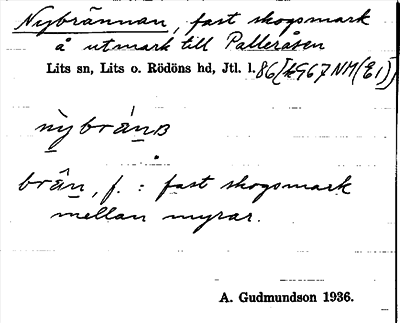 Nybrännan, fast skogsmark
å utmark till Palleråsen
Lits sn, Lits o. Rödöns hd, Jtl. l. 86
nỳbránʙ
brân, f. : fast skogsmark
mellan myrar.
A. Gudmundson 1936.